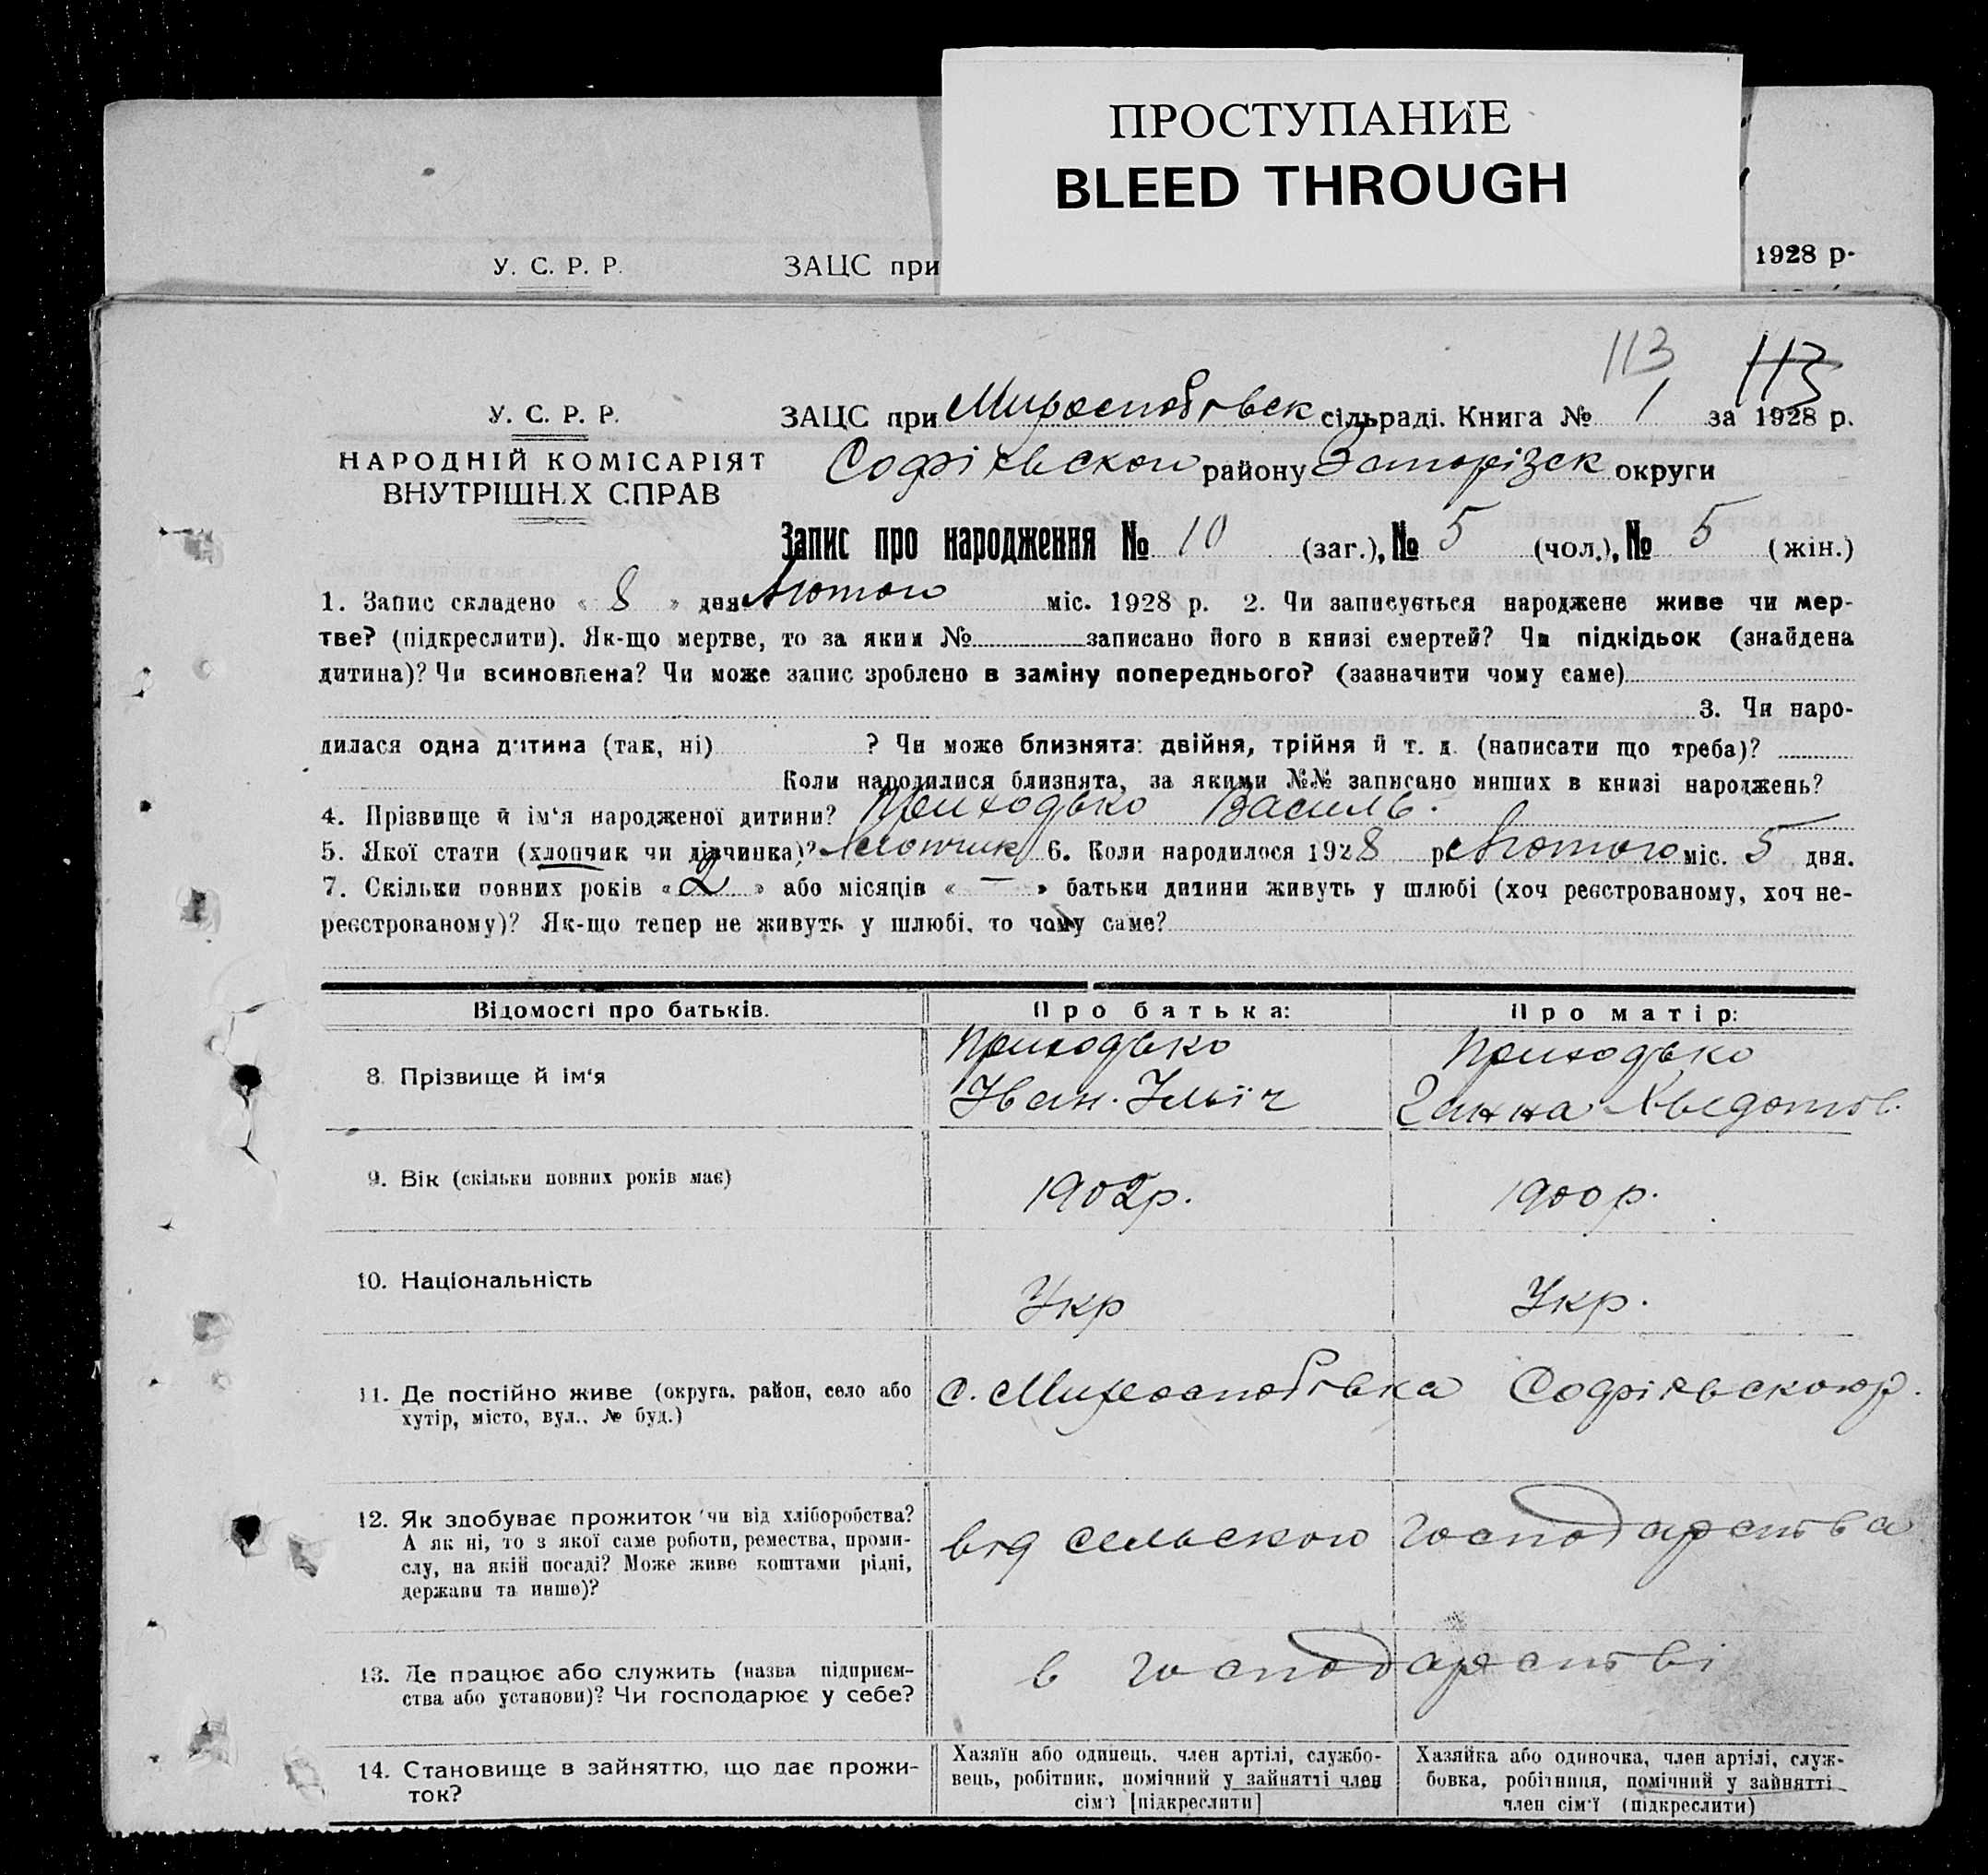 ПРОСТУПАНИЕ
BLEED THROUGH
У. С. Р. Р. ЗАЦС при 1928 р.
113 113
У. С. Р. Р. ЗАЦС при сільраді. Книга № 1 за 1928 р.
НАРОДНІЙ КОМІСАРІЯТ Софіївскои району Запорізск округи
ВНУТРІШН.Х СПРАВ
Запис про народження № 10 (заг.), № 5 (чол.), № 5 (жін.)
1. Запис складено « 8 » дня Лютого міс. 1928 р. 2. Чи записується народжене живе чи мер-
тве? (підкреслити). Як-що мертве, то за яким № записано його в книзі смертей? Чи підкідьок (знайдена
дитина)? Чи всиновлена? Чи може запис зроблено в заміну попереднього? (зазначити чому саме)
3. Чи наро-
дилася одна дитина (так, ні) ? Чи може близнята: двійня, трійня й т. д. (написати що треба)?
Коли народилися близнята, за якими №№ записано инших в книзі народжень?
4. Прізвище й ім'я народженої дитини? Приходько Василь.
5. Якої стати (хлопчик чи дівчинка)? Хлопчик 6. Коли народилося 1928 р. Лютого міс. 5 дня.
7. Скільки повних років « 2 » або місяців « — » батьки дитини живуть у шлюбі (хоч реєстрованому, хоч не-
реєстрованому)? Як-що тепер не живуть у шлюбі, то чому саме?
Відомості про батьків. Про батька: Про матір:
8. Прізвище й ім'я Приходько Іван. Ільїч Приходько Ганна
9. Вік (скільки повних років має) 1902р. 1900р.
10. Національність Укр Укр.
11. Де постійно живе (округа, район, село або с. Софіївскою р.
хутір, місто, вул., № буд.)
12. Як здобуває прожиток чи від хліборобства? від сельского господарства
А як ні, то з якої саме роботи, ремества, проми-
слу, на якій посаді? Може живе коштами рідні,
держави та инше)?
13. Де працює або служить (назва підприєм- в господарстві
ства або установи)? Чи господарює у себе?
14. Становище в зайняттю, що дає прожи-
ток?
Хазяїн або одинець, член артілі, службо-
вець, робітник, помічний у зайнятті член
сім'ї [підкреслити]
Хазяйка або одиночка, член артілі, служ-
бовка, робітниця, помічний у зайнятті
член сім'ї (підкреслити)